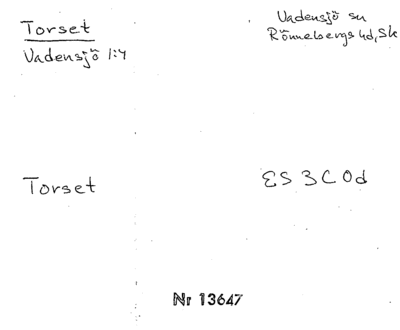 Torset
Vadensjö 1:4
Vadensjö sn
Rönnebergs hd, Sk
Torset
ES 3C0d
Nr 13647